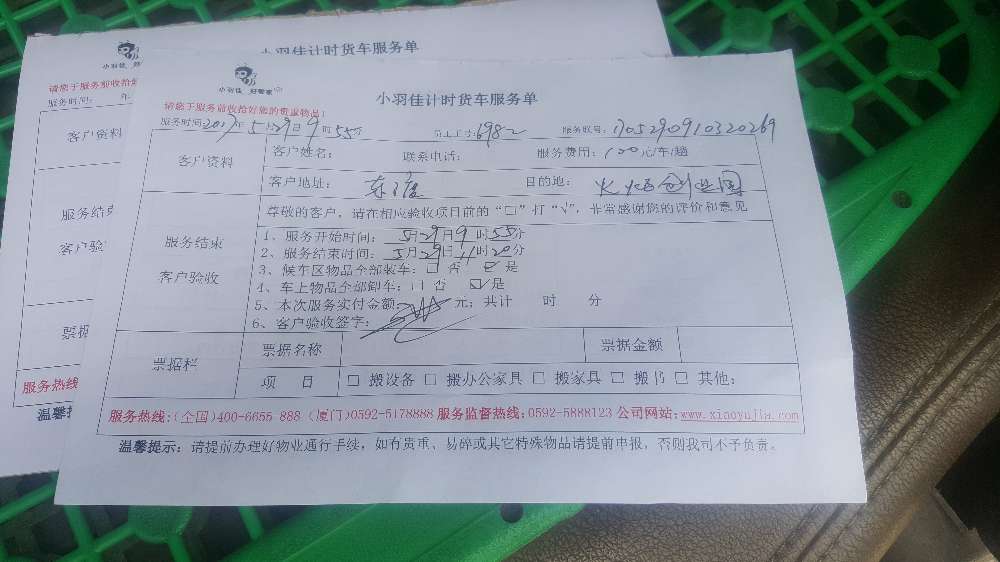 小羽佳计时货车服务单
小羽佳 好
请您于服务前收拾
服务时间: 年
客户资料
服务结束
客户验
票据
服务热线
温馨
小羽佳 好管家
小羽佳计时货车服务单
请您于服务前收拾好您的贵重物品!
服务时间:2017年5月29日9时55分 员工工号:6982 服务账号:1705290910320269
客户资料 客户姓名: 联系电话: 服务费用:100元/车/趟
客户地址: 东渡 目的地: 火炬创业园
尊敬的客户,请在相应验收项目前的“□”打“√”,非常感谢您的评价和意见
服务结束
客户验收
1、服务开始时间: 5月29日9时55分
2、服务结束时间: 5月29日11时20分
3、候车区物品全部装车:□ 否 ☑ 是
4、车上物品全部卸车:□ 否 ☑ 是
5、本次服务实付金额: 元;共计 时 分
6、客户验收签字:
票据栏 票据名称 票据金额
项 目 □ 搬设备 □ 搬办公家具 □ 搬家具 □ 搬书 □ 其他:
服务热线:(全国)400-6655-888 (厦门)0592-5178888 服务监督热线:0592-5888123 公司网站:www.xiaoyujia.com
温馨提示:请提前办理好物业通行手续,如有贵重、易碎或其它特殊物品请提前申报,否则我司不予负责。